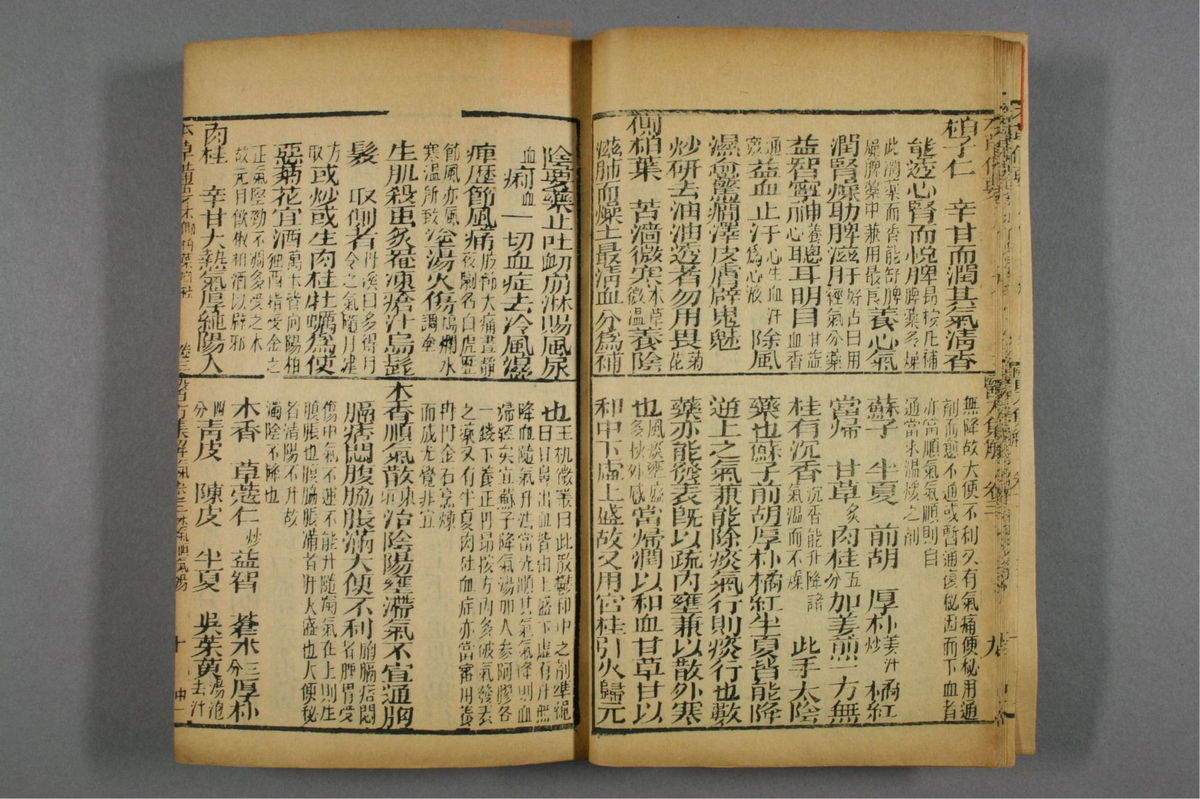 柏子仁　辛甘而潤其氣清香
能透心腎而悅脾昂按凡補脾藥多燥
此潤藥而香能舒脾燥脾藥中兼用最良養心氣
潤腎燥助脾滋肝好古曰肝經氣分藥
益智寧神養心聰耳明目甘益血香
通竅益血止汗心生血汗為心液除風
濕愈驚癇澤皮膚辟鬼魅
炒研去油油透者勿用畏菊花
側柏葉　苦濇微寒本草微溫養陰
滋肺而燥土最清血分為補
陰要藥止吐衄崩淋腸風尿
血血痢一切血症去冷風濕
痺歷節風痛肢節大痛晝靜夜劇名白虎歷
節風亦風寒濕所致塗湯火傷搗爛水調塗
生肌殺蟲炙罨凍瘡汁烏髭
髮　取側者丹溪曰多得月令之氣隨月建
方取或炒或生肉桂牡蠣為使
惡菊花宜酒萬木皆向陽柏獨西指受金之
正氣堅勁不凋多壽之木故元旦飲椒柏酒以辟邪
肉桂　辛甘大熱氣厚純陽入
無降故大便不利又有氣痛便秘用通
劑而愈不通或暫通復秘因而下血者
亦當順氣氣順則自
通當求溫煖之劑
蘇子　半夏　前胡　厚朴姜汁炒　橘紅
當歸　甘草炙　肉桂五分加姜煎一方無
桂有沉香沉香能升降諸氣溫而不燥　此手太陰
藥也蘇子前胡厚朴橘紅半夏皆能降
逆上之氣兼能除痰氣行則痰行也數
藥亦能發表既以疏內壅兼以散外寒
也風痰壅盛多挾外感當歸潤以和血甘草甘以
和中下虛上盛故又用官桂引火歸元
也王機微義曰此散鬱和中之劑準繩
曰鼻出血皆由上盛下虛有升無
降血隨氣升法當先順其氣氣降則血
歸經矣宜蘇子降氣湯加人參阿膠各
一錢下養正丹昂按方內多破氣發表
之藥又有半夏肉桂血症亦當審用養
正丹鬥金石烹煉
而成尤覺非宜
木香順氣散東垣治陰陽壅滯氣不宣通胸
膈痞悶腹脇脹滿大便不利
傷中氣不運不能升隨濁氣在上則生
䐜脹也腹脇脹滿者肝火盛也大便秘
者清陽不升故
濁陰不降也
木香　草蔻仁炒　益智　蒼朮三分　厚朴
四分　青皮　陳皮　半夏　吳茱萸湯泡去汁